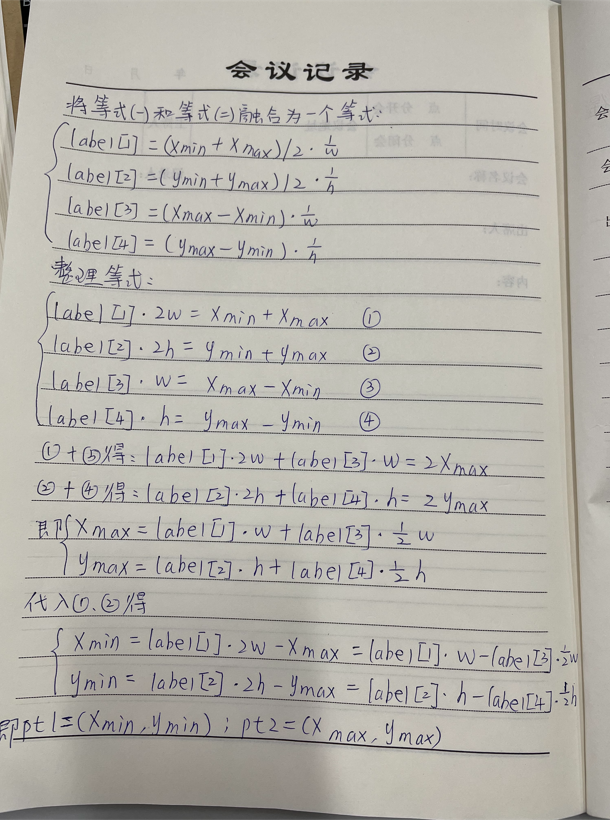 会议记录
将等式(一)和等式(二)融合为一个等式:
label[1]=(xmin+xmax)/2·1/w
label[2]=(ymin+ymax)/2·1/h
label[3]=(xmax-xmin)·1/w
label[4]=(ymax-ymin)·1/h
整理等式:
label[1]·2w=xmin+xmax ①
label[2]·2h=ymin+ymax ②
label[3]·w=xmax-xmin ③
label[4]·h=ymax-ymin ④
①+③得:label[1]·2w+label[3]·w=2xmax
②+④得:label[2]·2h+label[4]·h=2ymax
即{xmax=label[1]·w+label[3]·1/2w
ymax=label[2]·h+label[4]·1/2h
代入①、②得
xmin=label[1]·2w-xmax=label[1]·w-label[3]·1/2w
ymin=label[2]·2h-ymax=label[2]·h-label[4]·1/2h
即pt1=(xmin,ymin);pt2=(xmax,ymax)